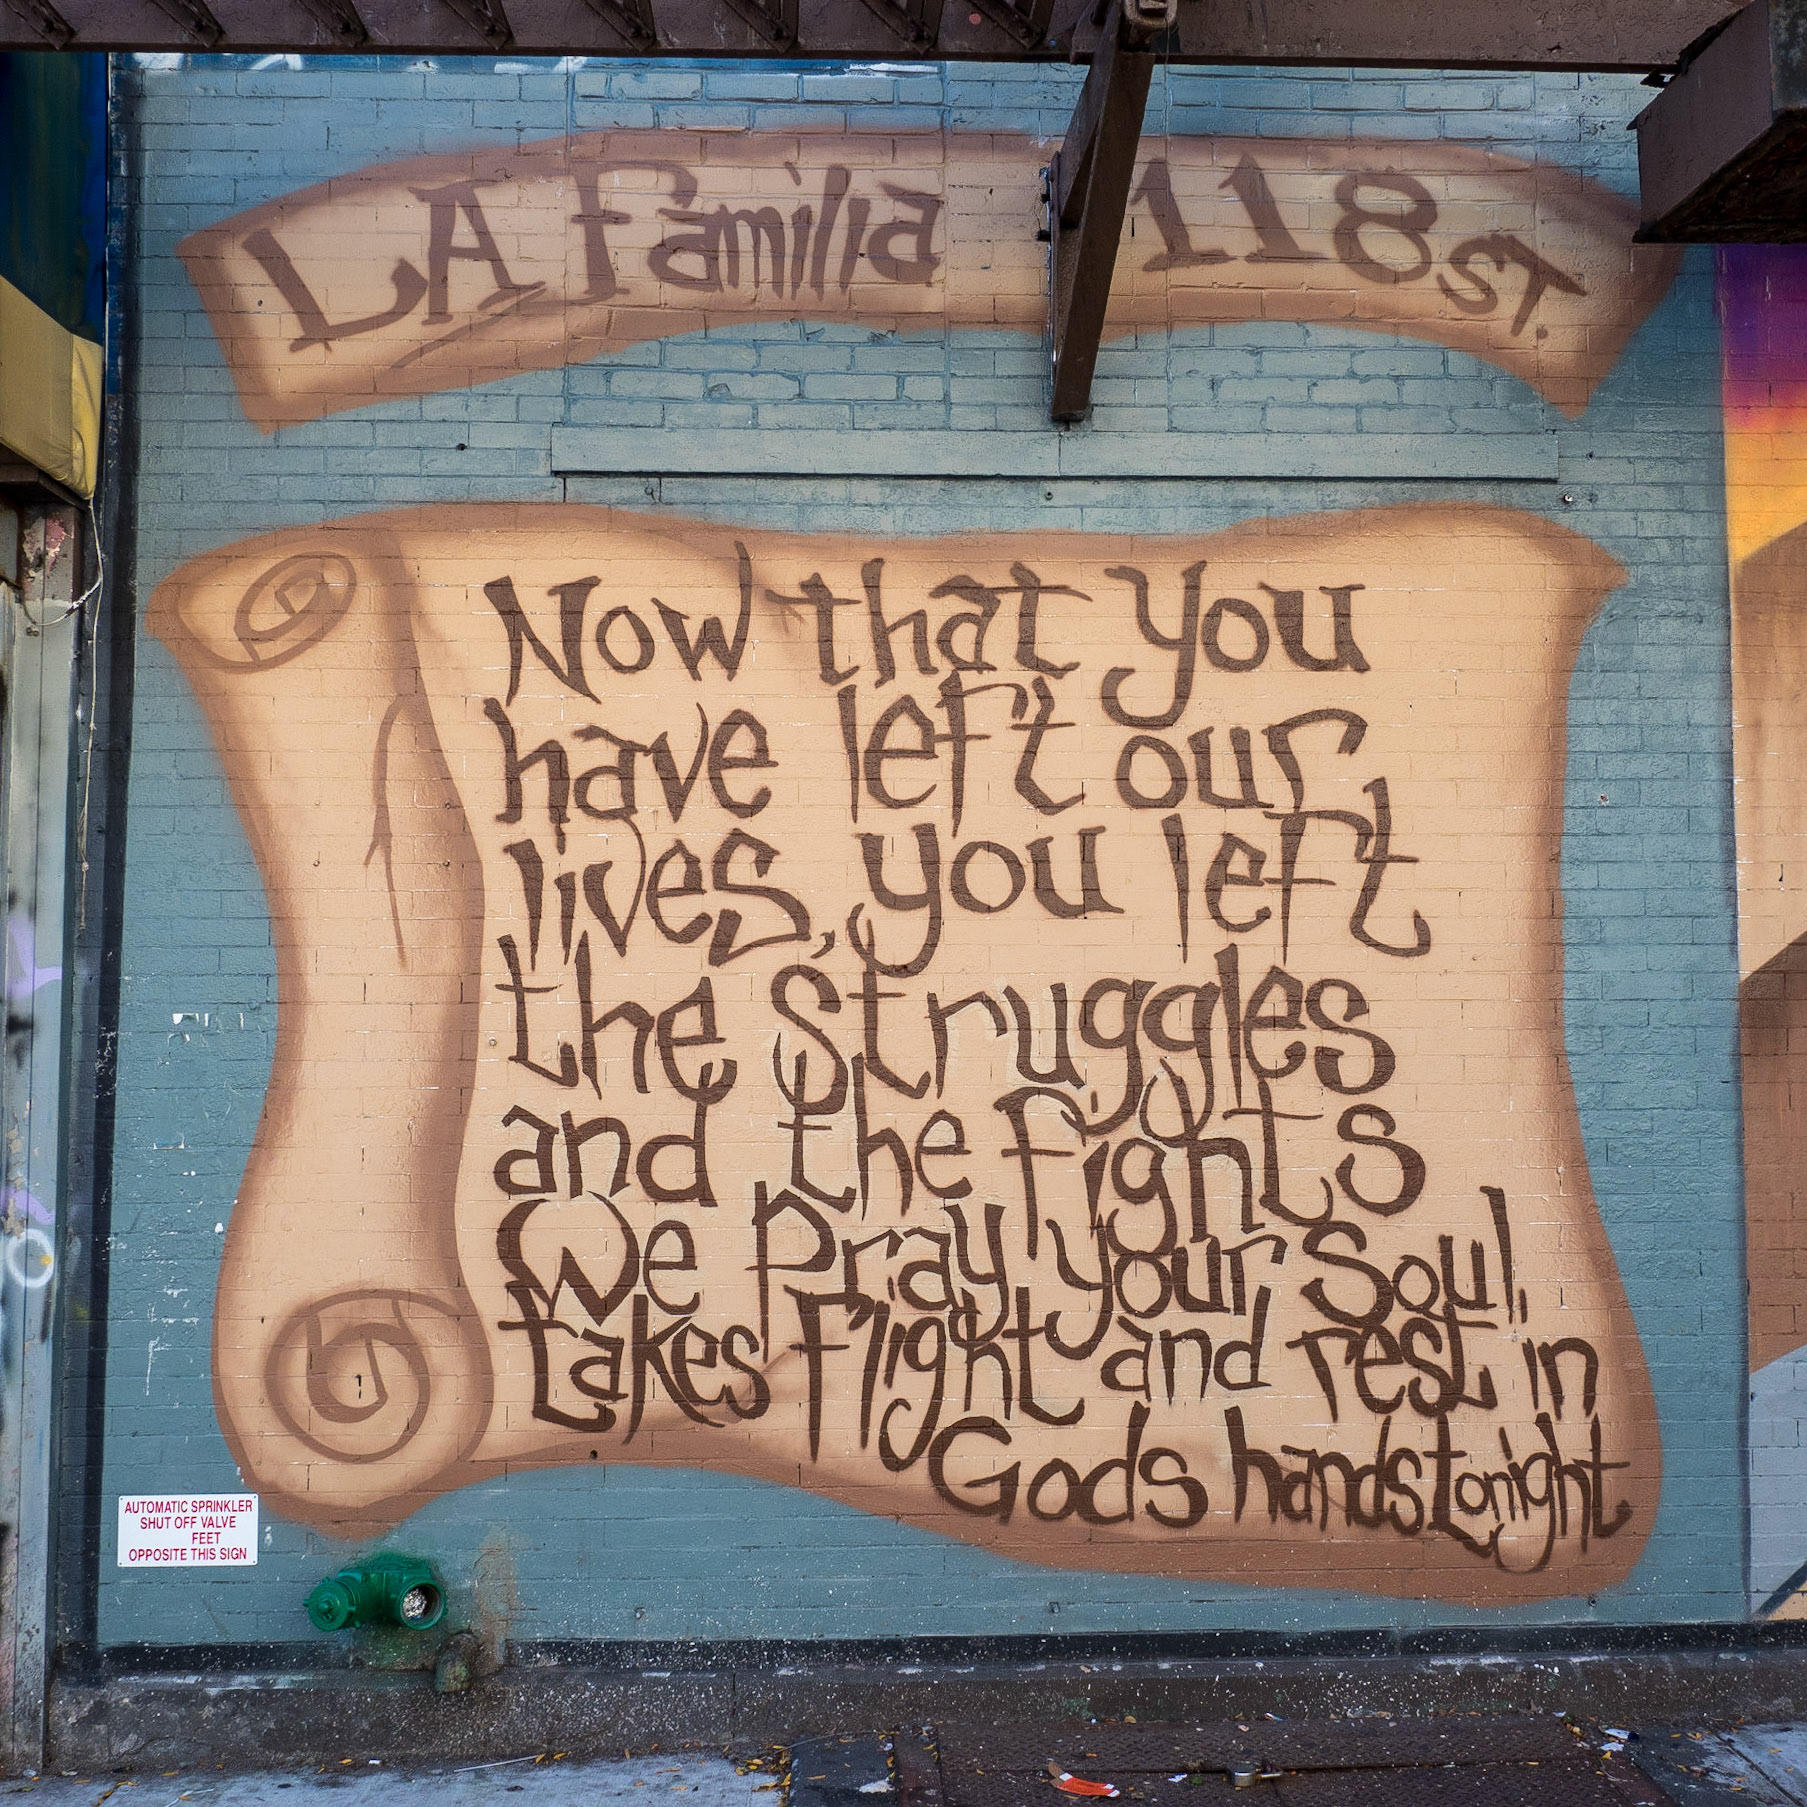 LA Familia 118 ST.
Now that you
have left our
lives, you left
the struggles
and the fights
We pray your soul,
takes flight and rest in
Gods hands tonight
AUTOMATIC SPRINKLER
SHUT OFF VALVE
FEET
OPPOSITE THIS SIGN